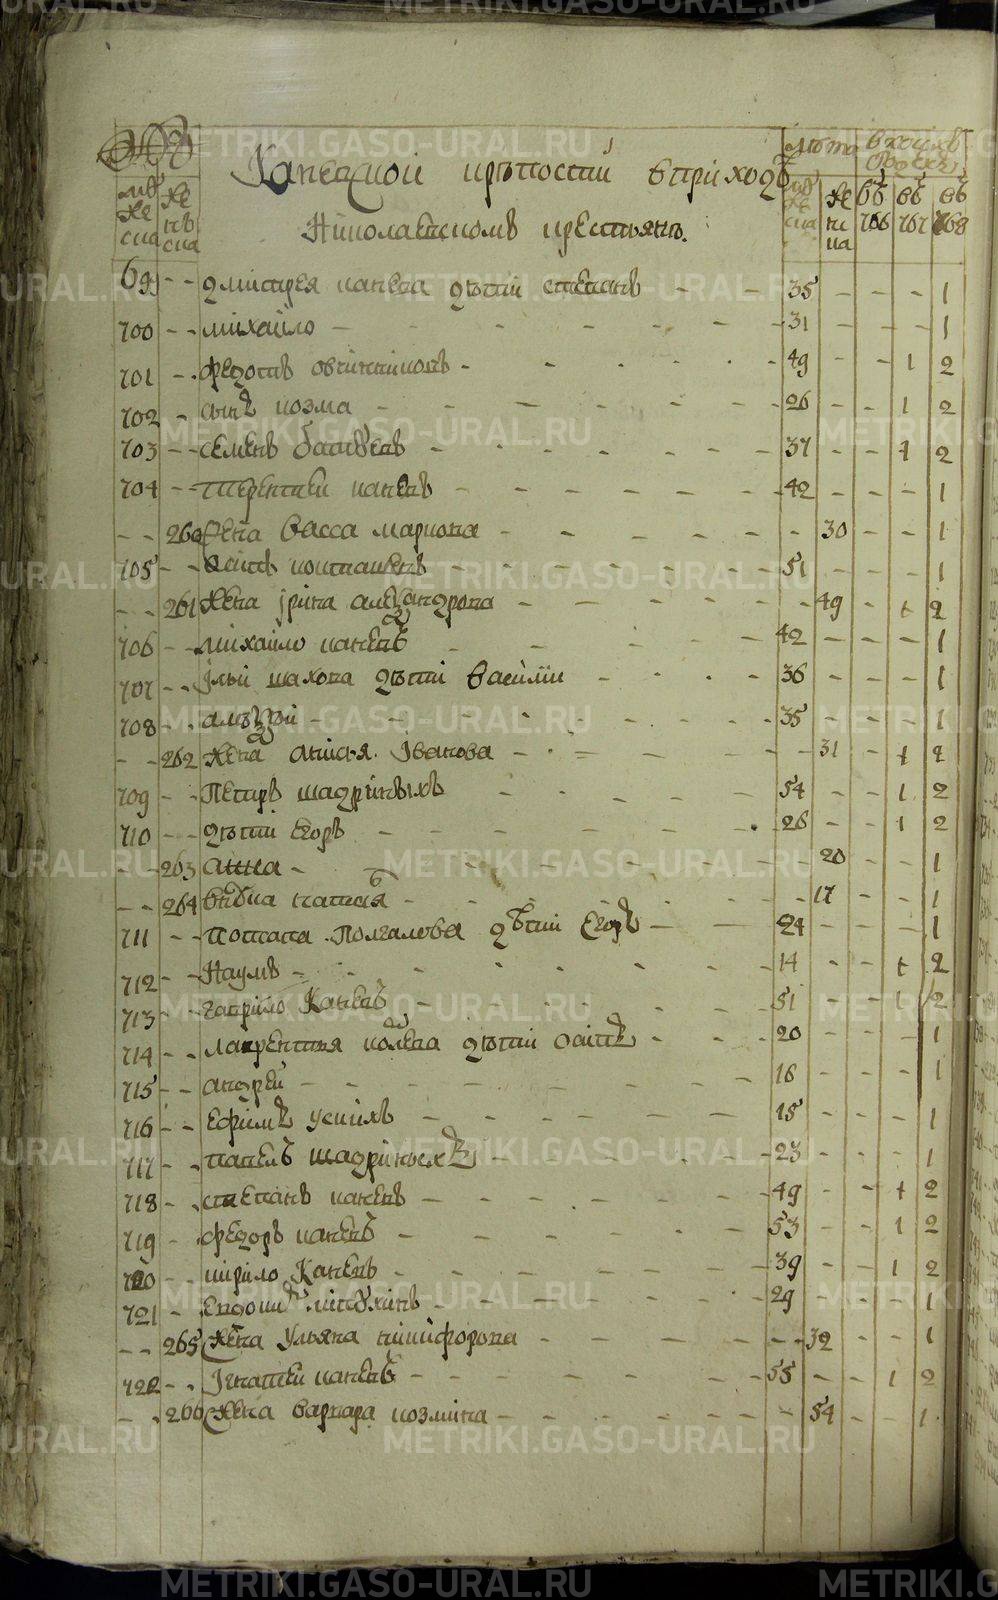 Каневской крѣпости в приходѣ
Николаевскомъ крестьянъ.
мужеска женска лѣта мужеска женска в коихъ годехъ въ 766 въ 767 въ 768
699 - - дмитрея канева дѣти степанъ - - 35 - - - 1
700 - - михайло - - 31 - - - 1
701 - - федотъ овчинниковъ - - 49 - - 1 2
702 - сынъ козма - - 26 - - 1 2
703 - - семенъ - - 37 - - 1 2
704 - - терентей каневъ - - 42 - - - 1
- - 260 жена васса маркова - - 30 - - 1
705 - - - - 51 - - - 1
- - 261 жена ірина александрова - - 49 - 1 2
706 - - михайло каневъ - - 42 - - - 1
707 - - ільи шахова дѣти василіи - - 36 - - - 1
708 - - алѣѯѣй - - 35 - - - 1
- - 262 жена анисья іванова - - 31 - 1 2
709 - - петръ шадриныхъ - - 54 - - 1 2
710 - - дѣти егоръ - - 26 - - 1 2
- - 263 анна - - 20 - - 1
- - 264 внука наталья - - 17 - - 1
711 - - потапа полгалова дѣти егоръ - - 24 - - - 1
712 - - наумъ - - 14 - - 1 2
713 - - гаврило каневъ - - 51 - - 1 2
714 - - лаврентья дѣти осипъ - - 20 - - - 1
715 - - андрей - - 16 - - - 1
716 - - ефимъ - - 15 - - - 1
717 - - павелъ шадриныхъ - - 23 - - - 1
718 - - степанъ каневъ - - 49 - - 1 2
719 - федоръ каневъ - - 53 - - 1 2
720 - - кирило каневъ - - 39 - - 1 2
721 - - евдоким - - 29 - - - 1
- - 265 жена ульяна никифорова - - 32 - - 1
722 - - ігнатей каневъ - - 55 - - 1 2
- - 266 жена варвара козмина - - 54 - - 1
METRIKI.GASO-URAL.RU